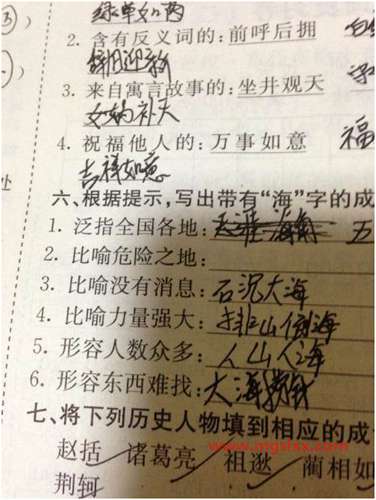 绿草如茵
2. 含有反义词的：前呼后拥
辞旧迎新
3. 来自寓言故事的：坐井观天
女娲补天
4. 祝福他人的：万事如意 福
吉祥如意
六、根据提示，写出带有“海”字的成
1. 泛指全国各地： 五
2. 比喻危险之地：
3. 比喻没有消息：石沉大海
4. 比喻力量强大：排山倒海
5. 形容人数众多：人山人海
6. 形容东西难找：大海捞针
七、将下列历史人物填到相应的成
赵括 诸葛亮 祖逖 蔺相如
荆轲